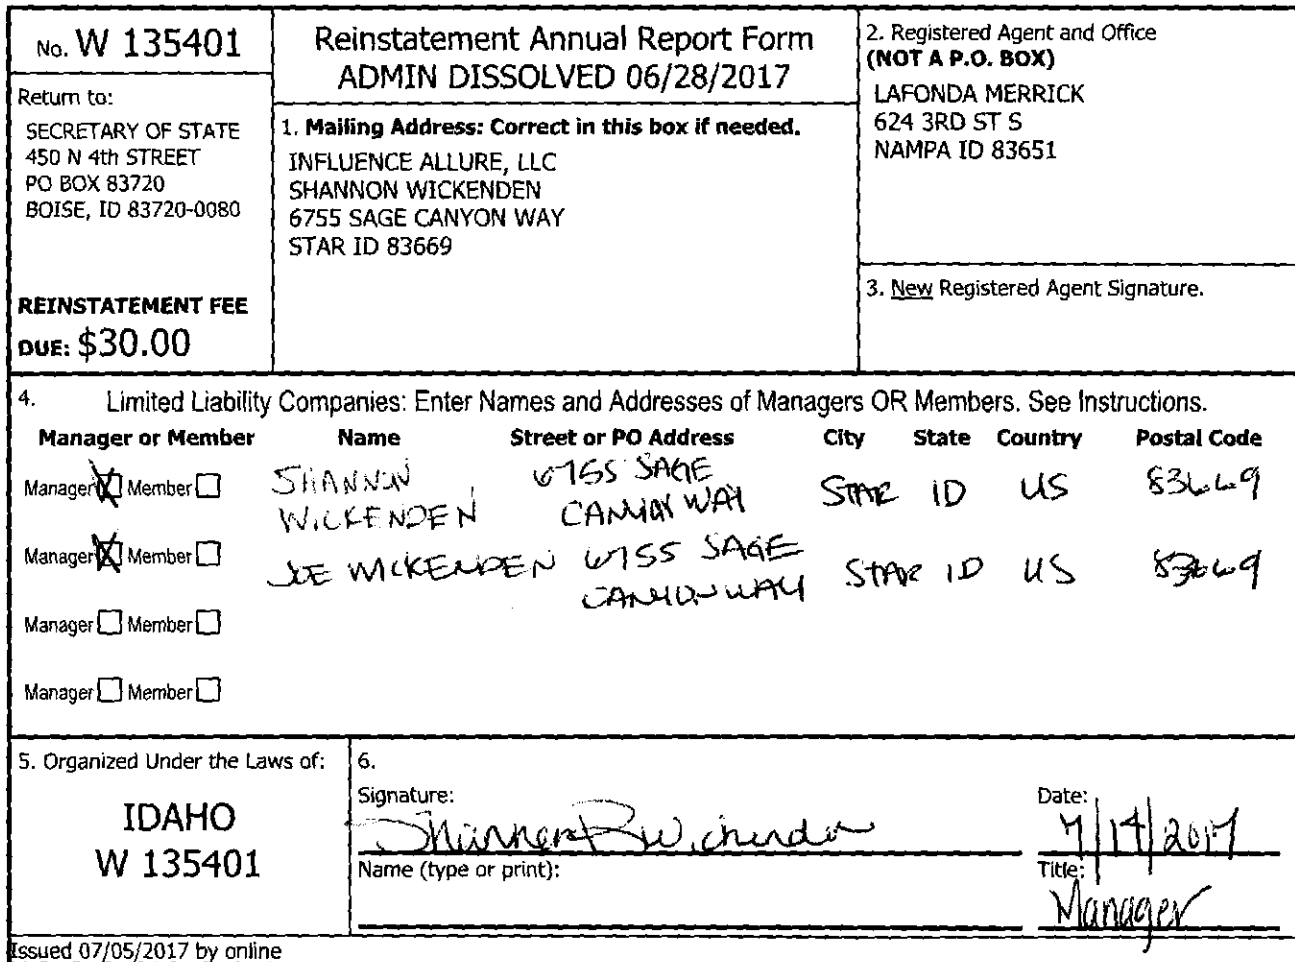 No. W 135401
Return to:
SECRETARY OF STATE
450 N 4th STREET
PO BOX 83720
BOISE, ID 83720-0080
REINSTATEMENT FEE
DUE: $30.00
Reinstatement Annual Report Form
ADMIN DISSOLVED 06/28/2017
1. Mailing Address: Correct in this box if needed.
INFLUENCE ALLURE, LLC
SHANNON WICKENDEN
6755 SAGE CANYON WAY
STAR ID 83669
2. Registered Agent and Office
(NOT A P.O. BOX)
LAFONDA MERRICK
624 3RD ST S
NAMPA ID 83651
3. New Registered Agent Signature.
4. Limited Liability Companies: Enter Names and Addresses of Managers OR Members. See Instructions.
Manager or Member Name Street or PO Address City State Country Postal Code
Manager Member SHANNON WICKENDEN 6755 SAGE CANYON WAY STAR ID US 83669
Manager Member JOE WICKENDEN 6755 SAGE CANYON WAY STAR ID US 83669
Manager Member
Manager Member
5. Organized Under the Laws of:
IDAHO
W 135401
6.
Signature: Shannon R Wickenden
Date: 7/14/2017
Name (type or print):
Title: Manager
Issued 07/05/2017 by online